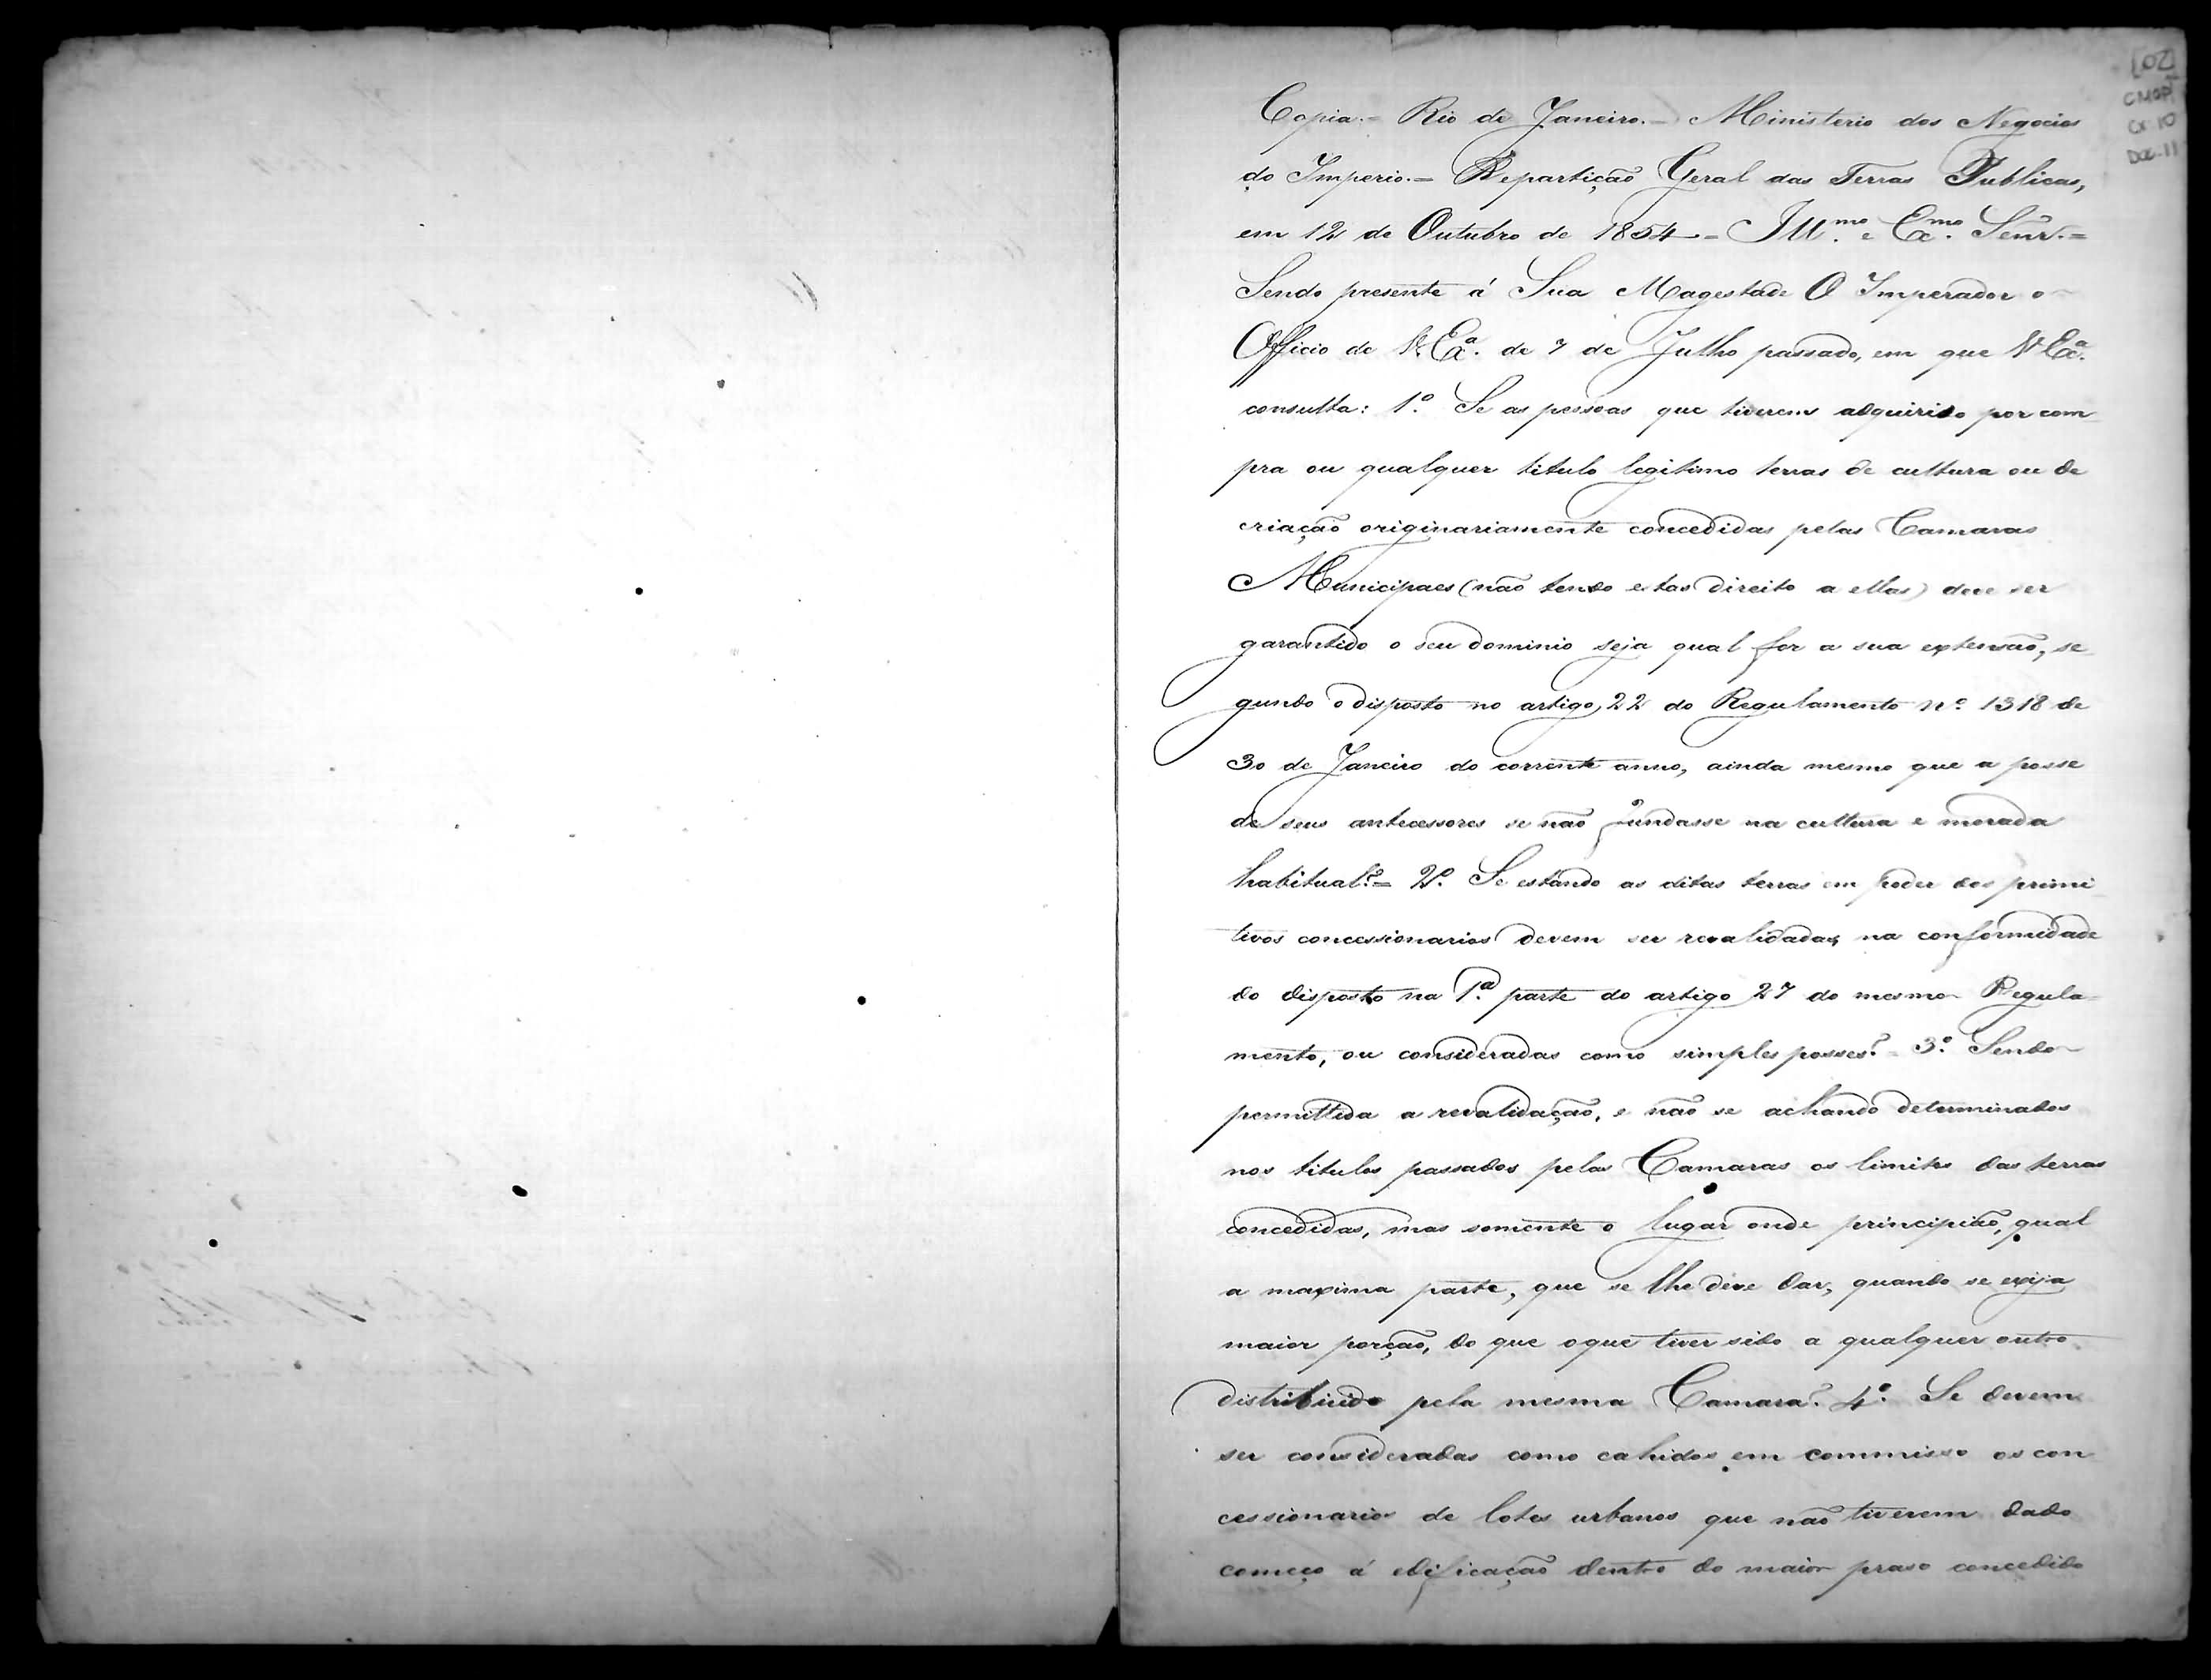 [02]
CMOP
Cx. 10
Doc. 11
Copia.= Rio de Janeiro.= Ministerio dos Negocios
do Imperio.= Repartição Geral das Terras Publicas,
em 12 de Outubro de 1854 = Ill.mo e Ex.mo Senr.=
Sendo presente á Sua Magestade O Imperador o
Officio de V. Ex.a de 7 de Julho passado, em que V. Ex.a
consulta: 1.º Se as pessoas que tiverem adquirido por com
pra ou qualquer titulo legitimo terras de cultura ou de
criação originariamente concedidas pelas Camaras
Municipaes (não tendo estas direito a ellas) deve ser
garantido o seu dominio seja qual for a sua extensão, se
gundo o disposto no artigo 22 do Regulamento nº 1318 de
30 de Janeiro do corrente anno, ainda mesmo que a posse
de seus antecessores se não fundasse na cultura e morada
habitual?= 2.º Se estando as ditas terras em poder dos primi
tivos concessionarios devem ser revalidadas na conformidade
do disposto na 1.ª parte do artigo 27 do mesmo Regula=
mento, ou consideradas como simples posses?= 3.º Sendo
permittida a revalidação, e não se achando determinados
nos titulos passados pelas Camaras os limites das terras
concedidas, mas somente o lugar onde principião, qual
a maxima parte, que se lhe deve dar, quando se exija
maior porção, do que o que tiver sido a qualquer outro
distribuido pela mesma Camara? 4.º Se devem
ser considerados como cahidos em commisso os con
cessionarios de lotes urbanos que não tiverem dado
começo á edificação dentro do maior praso concedido